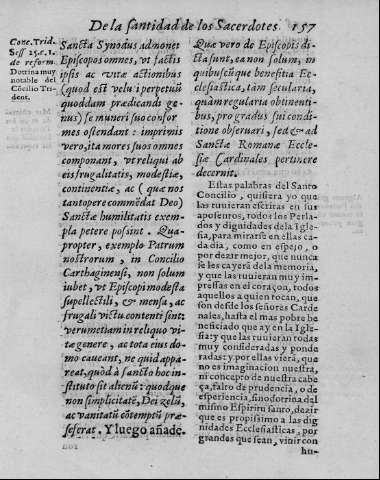 De la santidad de los Sacerdotes. 157
Conc. Trid.
Sess. 25. c. 1.
de reform.
Dotrina muy
notable del
Cõcilio Tri
dent.
Sancta Synodus admonet
Episcopos omnes, vt factis
ipsis ac vitæ actionibus
(quod est velu i perpetuũ
quoddam prædicandi ge-
nus) se muneri suo confor
mes ostendant : imprimis
vero, ita mores suos omnes
componant, vt reliqui ab
eis frugalitatis, modestiæ,
continentiæ, ac (quæ nos
tantopere commẽdat Deo)
Sanctæ humilitatis exem-
pla petere possint. Qua-
propter, exemplo Patrum
nostrorum, in Concilio
Carthaginensi, non solum
iubet, vt Episcopi modesta
supellectili, & mensa, ac
frugali victu contenti sint:
verum etiam in reliquo vi-
tæ genere, ac tota eius do-
mo caueant, ne quid appa-
reat, quòd à sancto hoc in-
stituto sit alienũ: quodque
non simplicitatẽ, Dei zelũ,
ac vanitatũ cõtemptũ præ-
seferat. Y luego añade.
Quæ vero de Episcopis di-
cta sunt, ea non solum, in
quibuscũque benefitia Ec-
clesiastica, tam secularia,
quam regularia obtinenti-
bus, pro gradus sui condi-
tione obseruari, sed & ad
Sanctæ Romanæ Eccle-
siæ Cardinales pertinere
decernit.
Estas palabras del Santo
Concilio, quisiera yo que
las tuuieran escritas en sus
aposentos, todos los Perla-
dos y dignidades de la Igle
sia, para mirarse en ellas ca
da dia, como en espejo, o
por dezir mejor, que nunca
se les cayera de la memoria,
y que las tuuieran muy im-
pressas en el coraçon, todos
aquellos a quien tocan, que
son desde los señores Carde
nales, hasta el mas pobre be
neficiado que ay en la Igle-
sia: y que las tuuieran todas
muy consideradas y ponde
radas: y por ellas vierã, que
no es imaginacion nuestra,
ni concepto de nuestra cabe
ça, falto de prudencia, o de
esperiencia, sino dotrina del
mismo Espiritu santo, dezir
que es propissimo a las dig
nidades Ecclesiasticas, por
grandes que sean, viuir con
hu-